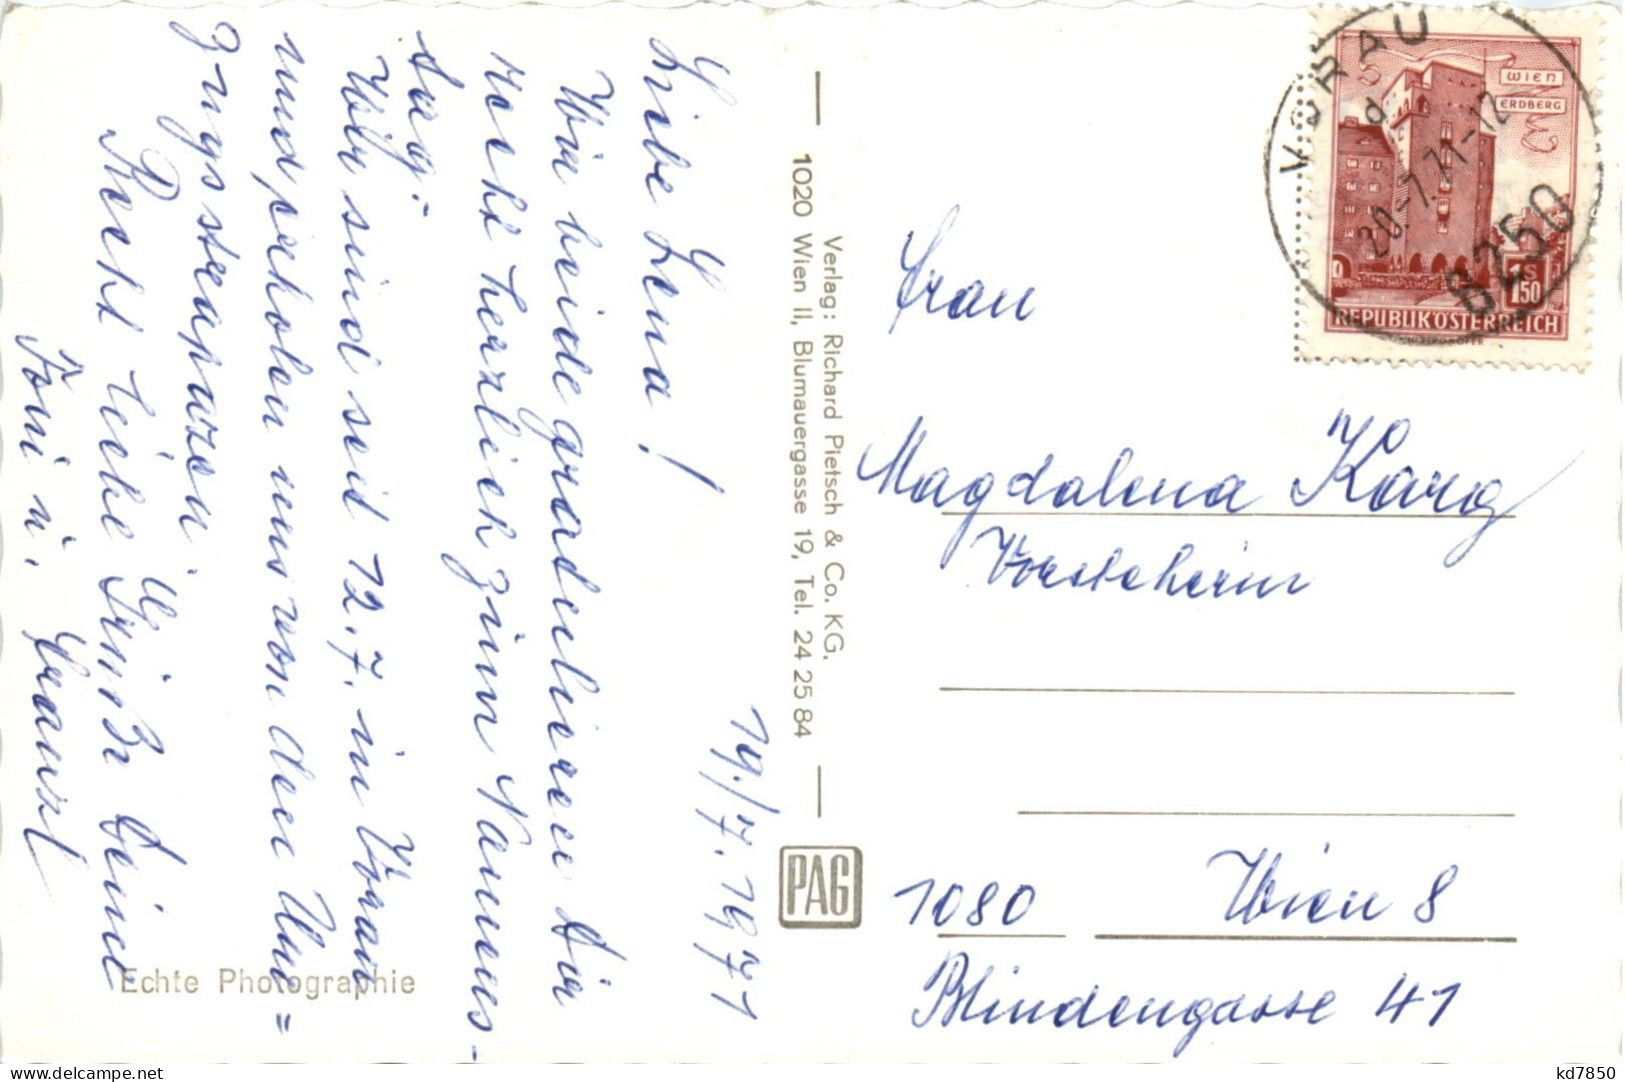 19./7. 1971
Liebe Lena!
Wir beide gradulieren dir
recht herzlich zum Namens-
tag.
Wir sind seit 12.7. in Vorau
und erholen uns von den Um=
zugsstrapazen.
Recht liebe Grüße deine
Toni u. Franzl
Echte Photographie
Verlag: Richard Pietsch & Co. KG.
1020 Wien II, Blumauergasse 19, Tel. 24 25 84
PAG
VORAU
d
20.-7.71-12
8250
WIEN
ERDBERG
1 S 50
REPUBLIK ÖSTERREICH
Frau
Magdalena Karg
Vorsteherin
1080 Wien 8
Blindengasse 41
kd7850